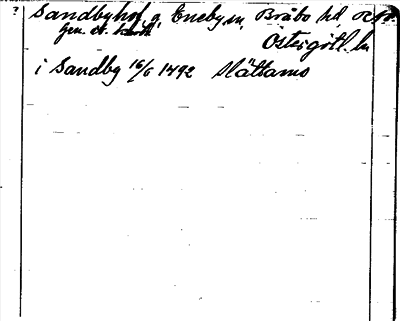 ?
Sandbyhof g, Eneby sn, Bråbo hd,
Östergötl. ln
i Sandby 16/6 1492 Slättamo